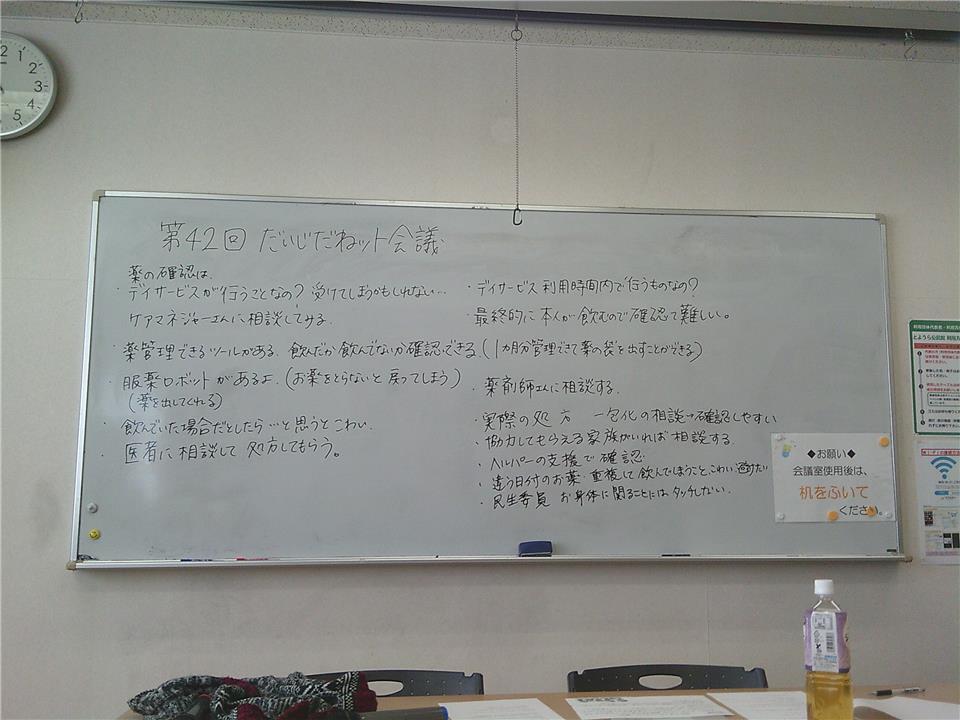 第42回 だいじだねット会議
薬の確認は、
・デイサービスが行うことなの? 受けてしまうかもしれない…
ケアマネジャーさんに相談してみる
・薬管理できるツールがある。飲んだか飲んでないか確認できる(1カ月分管理できて薬の袋を出すことができる)
・服薬ロボットがあるよ.(お薬をとらないと戻ってしまう)
(薬を出してくれる)
・飲んでいた場合だとしたら…と思うとこわい.
・医者に相談して処方してもらう。
・デイサービス利用時間内で行うものなの?
・最終的に本人が飲むので確認って難しい。
・薬剤師さんに相談する.
・実際の処方 一包化の相談→確認しやすい
・協力してもらえる家族がいれば相談する
・ヘルパーの支援で確認
・違う日付のお薬・重複して飲んでしまうこと、こわい 避けたい
・民生委員 お身体に関ることにはタッチしない.
◆お願い◆
会議室使用後は、
机をふいて
ください。
とようら公民館
12
1
2
3
4
5